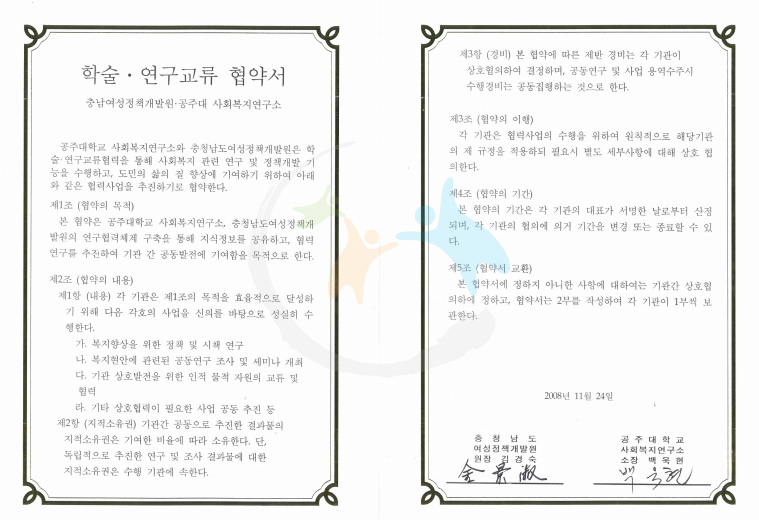 학술·연구교류 협약서
충남여성정책개발원·공주대 사회복지연구소
공주대학교 사회복지연구소와 충청남도여성정책개발원은 학
술·연구교류협력을 통해 사회복지 관련 연구 및 정책개발 기
능을 수행하고, 도민의 삶의 질 향상에 기여하기 위하여 아래
와 같은 협력사업을 추진하기로 협약한다.
제1조 (협약의 목적)
본 협약은 공주대학교 사회복지연구소, 충청남도여성정책개
발원의 연구협력체계 구축을 통해 지식정보를 공유하고, 협력
연구를 추진하여 기관 간 공동발전에 기여함을 목적으로 한다.
제2조 (협약의 내용)
제1항 (내용) 각 기관은 제1조의 목적을 효율적으로 달성하
기 위해 다음 각호의 사업을 신의를 바탕으로 성실히 수
행한다.
가. 복지향상을 위한 정책 및 시책 연구
나. 복지현안에 관련된 공동연구 조사 및 세미나 개최
다. 기관 상호발전을 위한 인적 물적 자원의 교류 및
협력
라. 기타 상호협력이 필요한 사업 공동 추진 등
제2항 (지적소유권) 기관간 공동으로 추진한 결과물의
지적소유권은 기여한 비율에 따라 소유한다. 단,
독립적으로 추진한 연구 및 조사 결과물에 대한
지적소유권은 수행 기관에 속한다.
제3항 (경비) 본 협약에 따른 제반 경비는 각 기관이
상호협의하여 결정하며, 공동연구 및 사업 용역수주시
수행경비는 공동집행하는 것으로 한다.
제3조 (협약의 이행)
각 기관은 협력사업의 수행을 위하여 원칙적으로 해당기관
의 제 규정을 적용하되 필요시 별도 세부사항에 대해 상호 협
의한다.
제4조 (협약의 기간)
본 협약의 기간은 각 기관의 대표가 서명한 날로부터 산정
되며, 각 기관의 협의에 의거 기간을 변경 또는 종료할 수 있
다.
제5조 (협약서 교환)
본 협약서에 정하지 아니한 사항에 대하여는 기관간 상호협
의하에 정하고, 협약서는 2부를 작성하여 각 기관이 1부씩 보
관한다.
2008년 11월 24일
충청남도
여성정책개발원
원장 김경숙
金景淑
공주대학교
사회복지연구소
소장 백욱현
백욱현